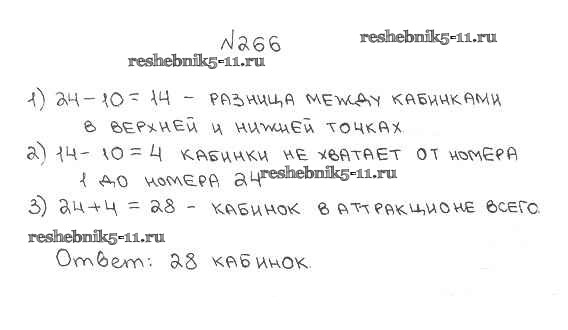 №266
reshebnik5-11.ru
reshebnik5-11.ru
1) 24-10=14 - РАЗНИЦА МЕЖДУ КАБИНКАМИ
В ВЕРХНЕЙ И НИЖНЕЙ ТОЧКАХ
2) 14-10=4 КАБИНКИ НЕ ХВАТАЕТ ОТ НОМЕРА
1 ДО НОМЕРА 24
reshebnik5-11.ru
3) 24+4=28 - КАБИНОК В АТТРАКЦИОНЕ ВСЕГО.
reshebnik5-11.ru
Ответ: 28 КАБИНОК.